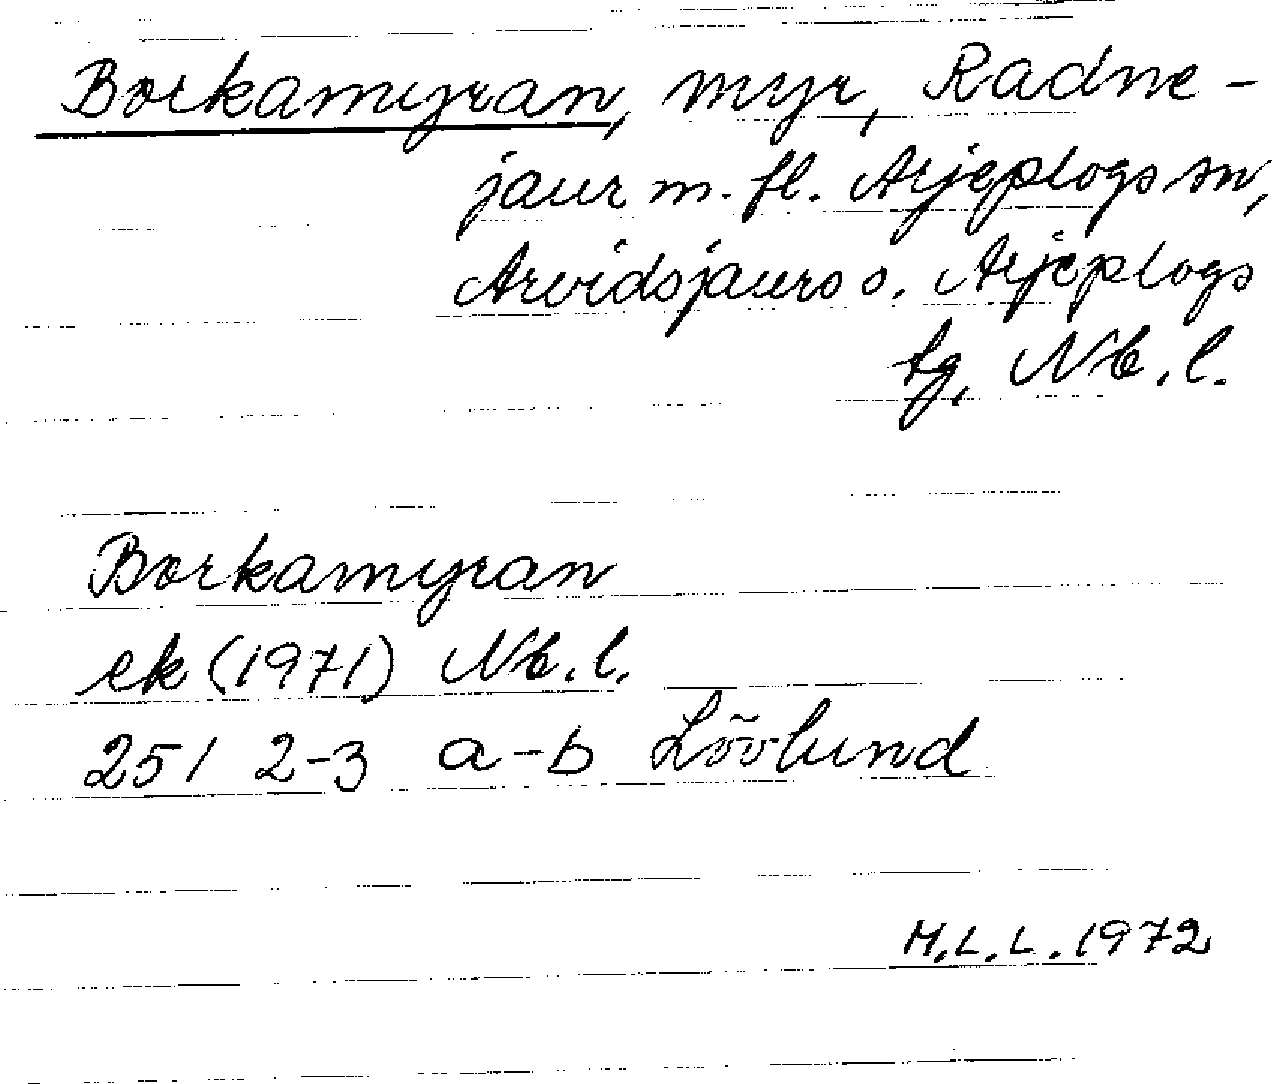 Borkamyran, myr, Radne-
jaur m. fl. Arjeplogs sn,
Arvidsjaurs o. Arjeplogs
tg, Nb. l.
Borkamyran
ek (1971) Nb. l.
251 2-3 a-b Lövlund
M.L.L. 1972